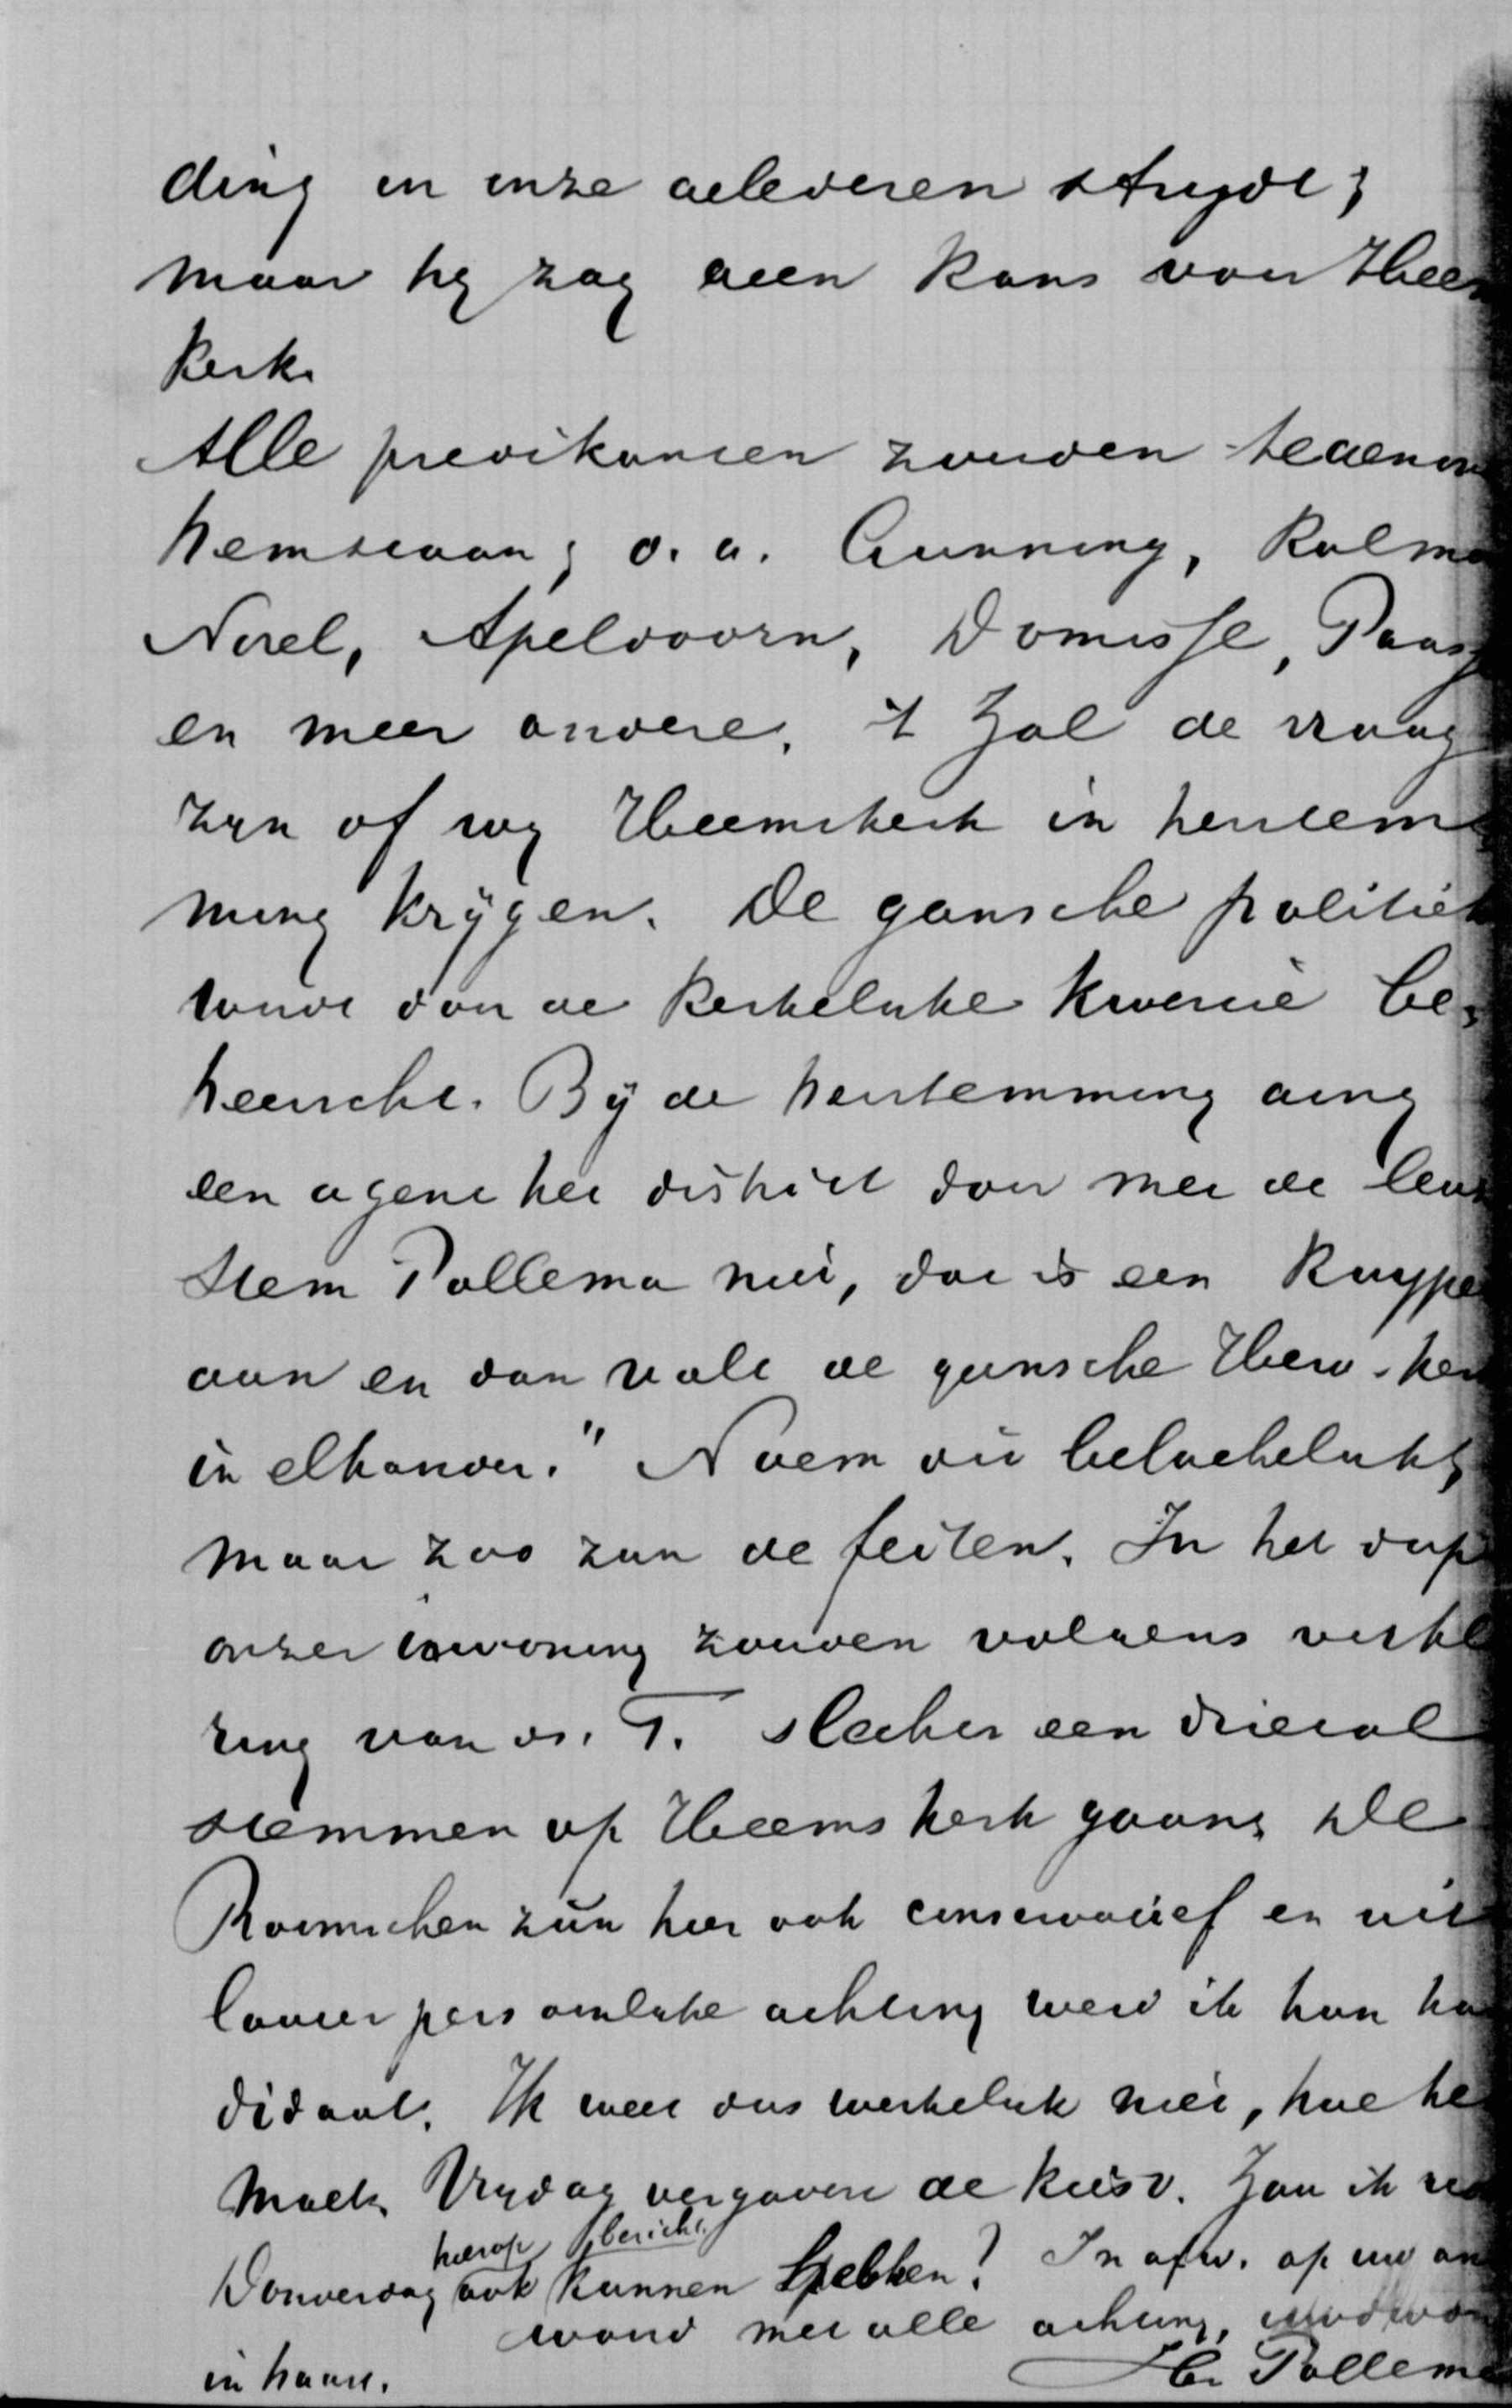 ding in onze gelederen strijdt;
maar hij zag geen kans voor Heems
kerk.
Alle predikanten zouden tegenover
hem staan; o.a. Gunning, Kalma
Norel, Apeldoorn, Domisse,
en meer andere. 't Zal de vraag
zijn of wij Heemskerk in herstem
ming krijgen. De gansche politiek
wordt door de kerkelijke kwestie be,
heerscht. Bij de herstemming ging
een agent het district door met de leus
Stem Pollema niet, dat is een Kuyper
aan en dan valt de gansche Herv. kerk
in elkander." Noem dit belachelijk,
maar zoo zijn de feiten. In het dorp
onzer inwoning zouden volgens verkla
ring van ds. T. slechts een drietal
stemmen op Heemskerk gaan. De
Roomschen zijn hier ook conservatief en uit
louter persoonlijke achting werd ik hun kan
didaat. Ik weet dus werkelijk niet, hoe het
moet. Vrijdag vergadert de kiesv. Zou ik
hierop bericht
Donderdag ook kunnen hebben? In afw. op uw ant
woord met alle achting,
in haast.
Hn Pollema